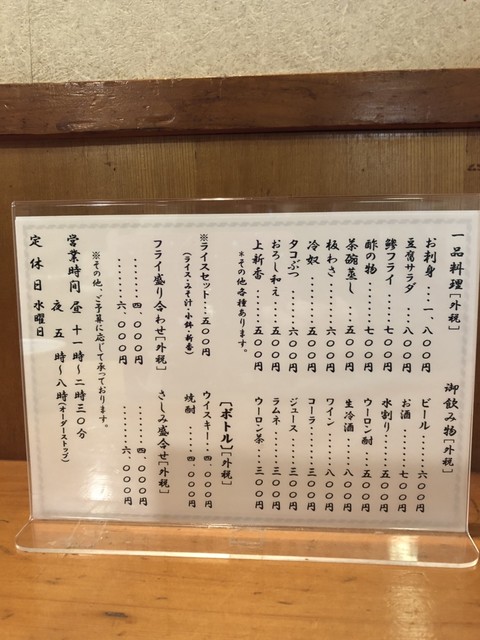 一品料理[外税]
お刺身...一、八〇〇円
豆腐サラダ...八〇〇円
鯵フライ.....七〇〇円
酢の物.......七〇〇円
茶碗蒸し.....五〇〇円
板わさ.......六〇〇円
冷奴.........五〇〇円
タコぶつ.....六〇〇円
おろし和え...五〇〇円
上新香.......五〇〇円
*その他各種あります。
※ライスセット...五〇〇円
(ライス・みそ汁・小鉢・新香)
フライ盛り合わせ[外税]
........四、〇〇〇円
........六、〇〇〇円
※その他、ご予算に応じて承っております。
営業時間 昼 十一時〜二時三〇分
夜 五 時〜八時(オーダーストップ)
定休日 水曜日
御飲み物[外税]
ビール.....六〇〇円
お酒.......七〇〇円
水割り.....五〇〇円
ウーロン酎...五〇〇円
生冷酒.....八〇〇円
ワイン.....八〇〇円
コーラ.....三〇〇円
ジュース...三〇〇円
ラムネ.....三〇〇円
ウーロン茶...三〇〇円
[ボトル][外税]
ウイスキー..四、〇〇〇円
焼酎........四、〇〇〇円
さしみ盛合せ[外税]
........四、〇〇〇円
........六、〇〇〇円